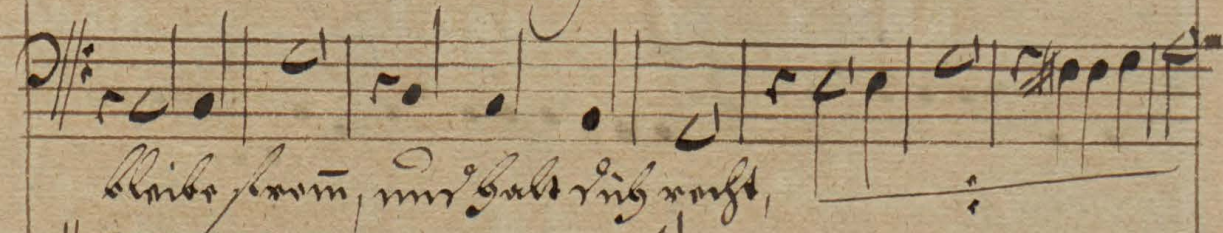 bleibe from̅, und halt dich recht,